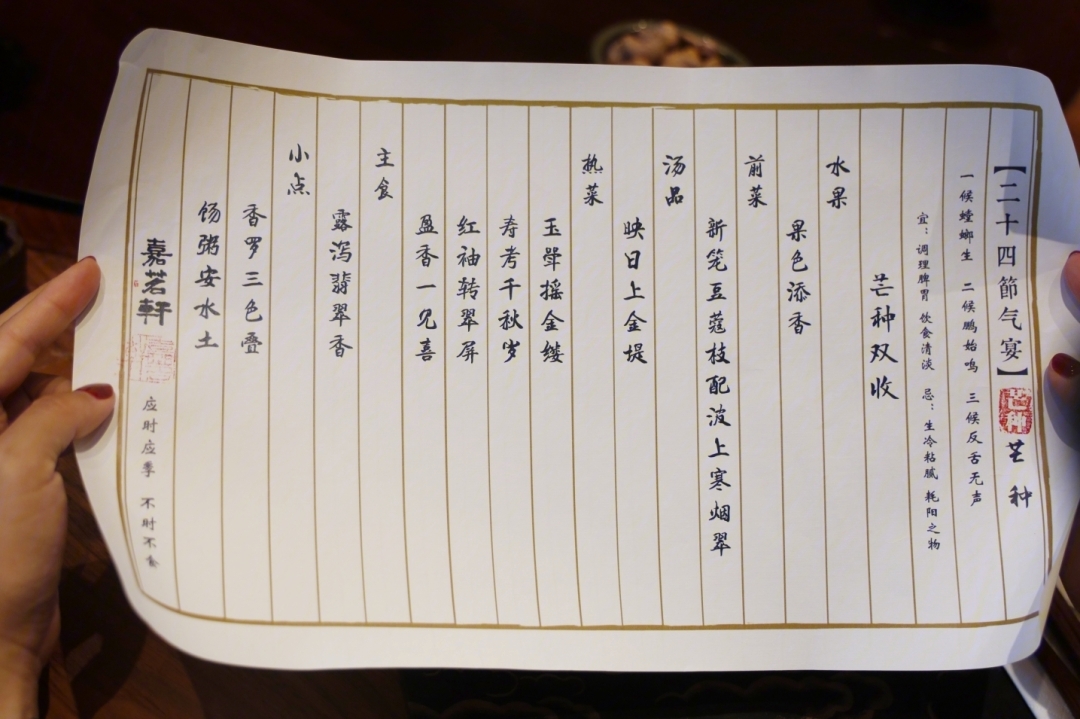 【二十四節气宴】芒种 芒种
一候螳螂生 二候鹏始鸣 三候反舌无声
宜：调理脾胃 饮食清淡 忌：生冷粘腻 耗阳之物
芒种双收
水果
果色添香
前菜
新笼豆蔻枝配波上寒烟翠
汤品
映日上金堤
热菜
玉斝摇金缕
寿考千秋岁
红袖转翠屏
盈香一见喜
主食
露泻翡翠香
小点
香罗三色叠
饧粥安水土
嘉茗軒 应时应季 不时不食